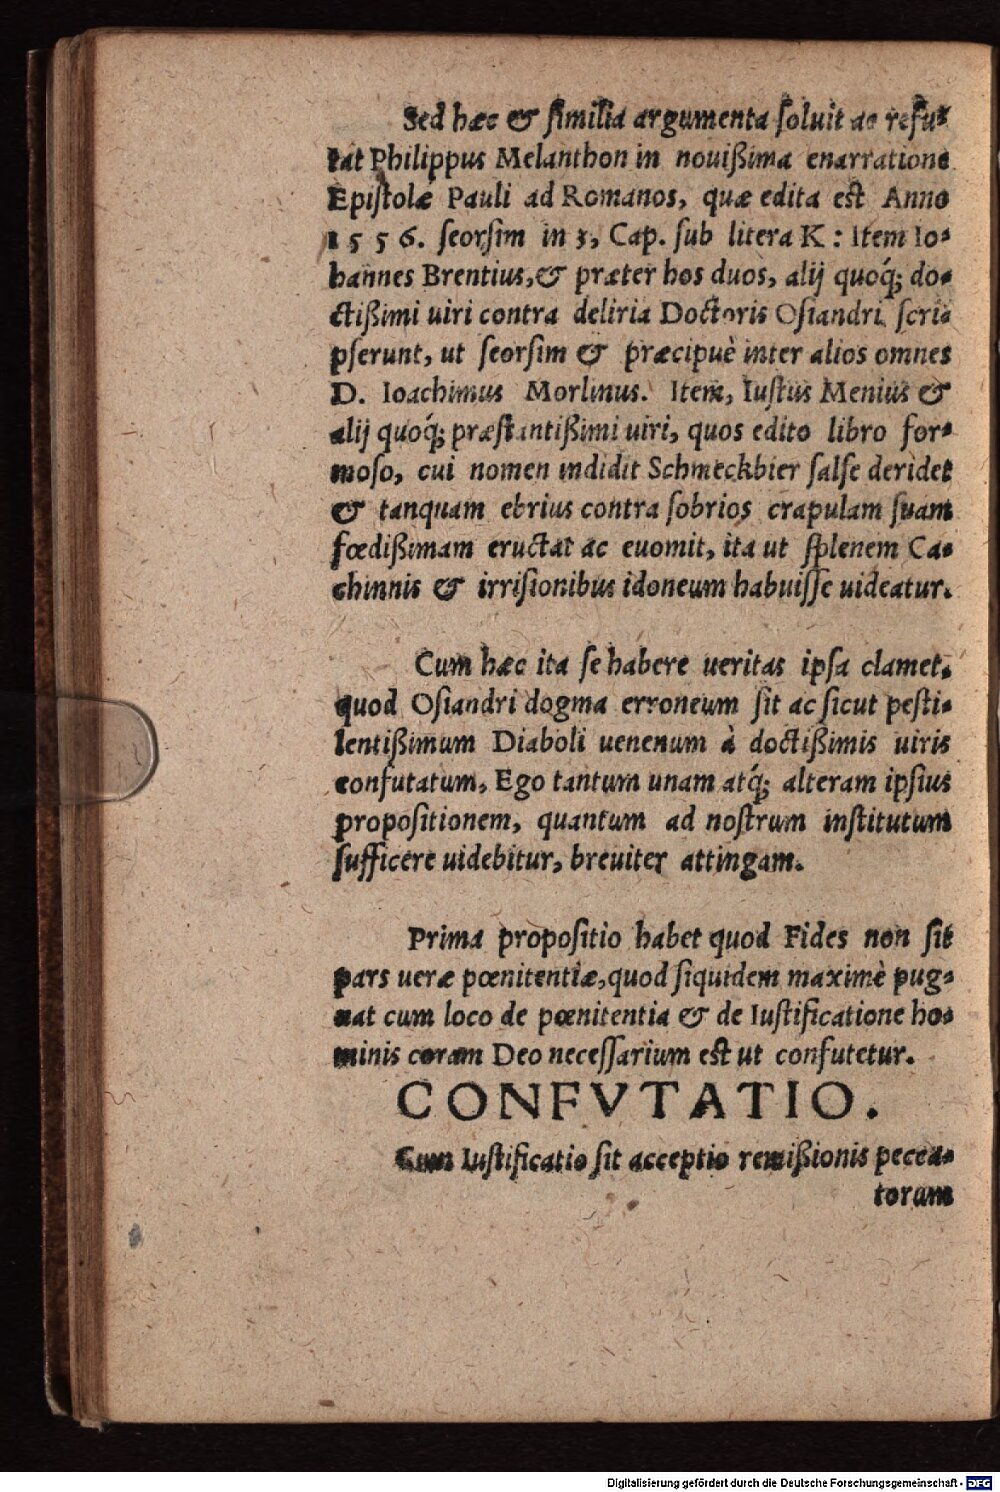 Sed hæc & ſimilia argumenta ſoluit ac refu⸗
tat Philippus Melanthon in nouißima enarratione
Epiſtolæ Pauli ad Romanos, quæ edita eſt Anno
1556. ſeorſim in 3, Cap. ſub litera K : Item Io⸗
hannes Brentius, & præter hos duos, alij quoq́; do⸗
ctißimi uiri contra deliria Doctoris Oſiandri ſcri⸗
pſerunt, ut ſeorſim & præcipuè inter alios omnes
D. Ioachimus Morlinus. Item, Iuſtus Menius &
alij quoq́; præſtantißimi uiri, quos edito libro for⸗
moſo, cui nomen indidit Schmeckbier ſalſe deridet
& tanquam ebrius contra ſobrios crapulam ſuam
fœdißimam eructat ac euomit, ita ut ſplenem Ca⸗
chinnis & irriſionibus idoneum habuiſſe uideatur.
Cum hæc ita ſe habere ueritas ipſa clamet,
quod Oſiandri dogma erroneum ſit ac ſicut peſti⸗
lentißimum Diaboli uenenum à doctißimis uiris
confutatum, Ego tantum unam atq́; alteram ipſius
propoſitionem, quantum ad noſtrum inſtitutum
ſufficere uidebitur, breuiter attingam.
Prima propoſitio habet quod Fides non ſit
pars ueræ pœnitentiæ, quod ſiquidem maximè pug⸗
nat cum loco de pœnitentia & de Iuſtificatione ho⸗
minis coram Deo neceſſarium eſt ut confutetur.
CONFVTATIO.
Cum Iuſtificatio ſit acceptio remißionis pecca⸗
torum
Digitalisierung gefördert durch die Deutsche Forschungsgemeinschaft - DFG